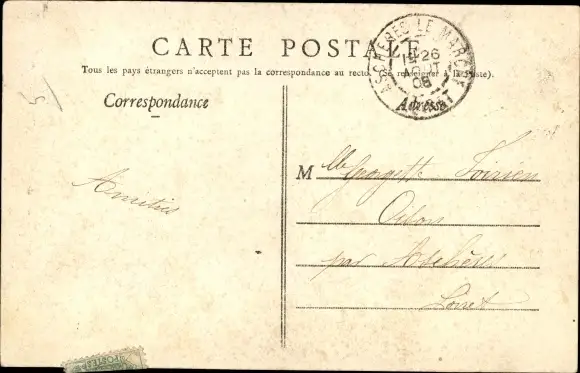 CARTE POSTALE
Tous les pays étrangers n'acceptent pas la correspondance au recto. (Se renseigner à la Poste).
ASCHERES LE MARCHE
26
AOUT
08
LOIRET
5
Correspondance
Adresse
Amitiés
Mlle Georgette Poirier
Oison
par Aschères
Loiret
POSTES